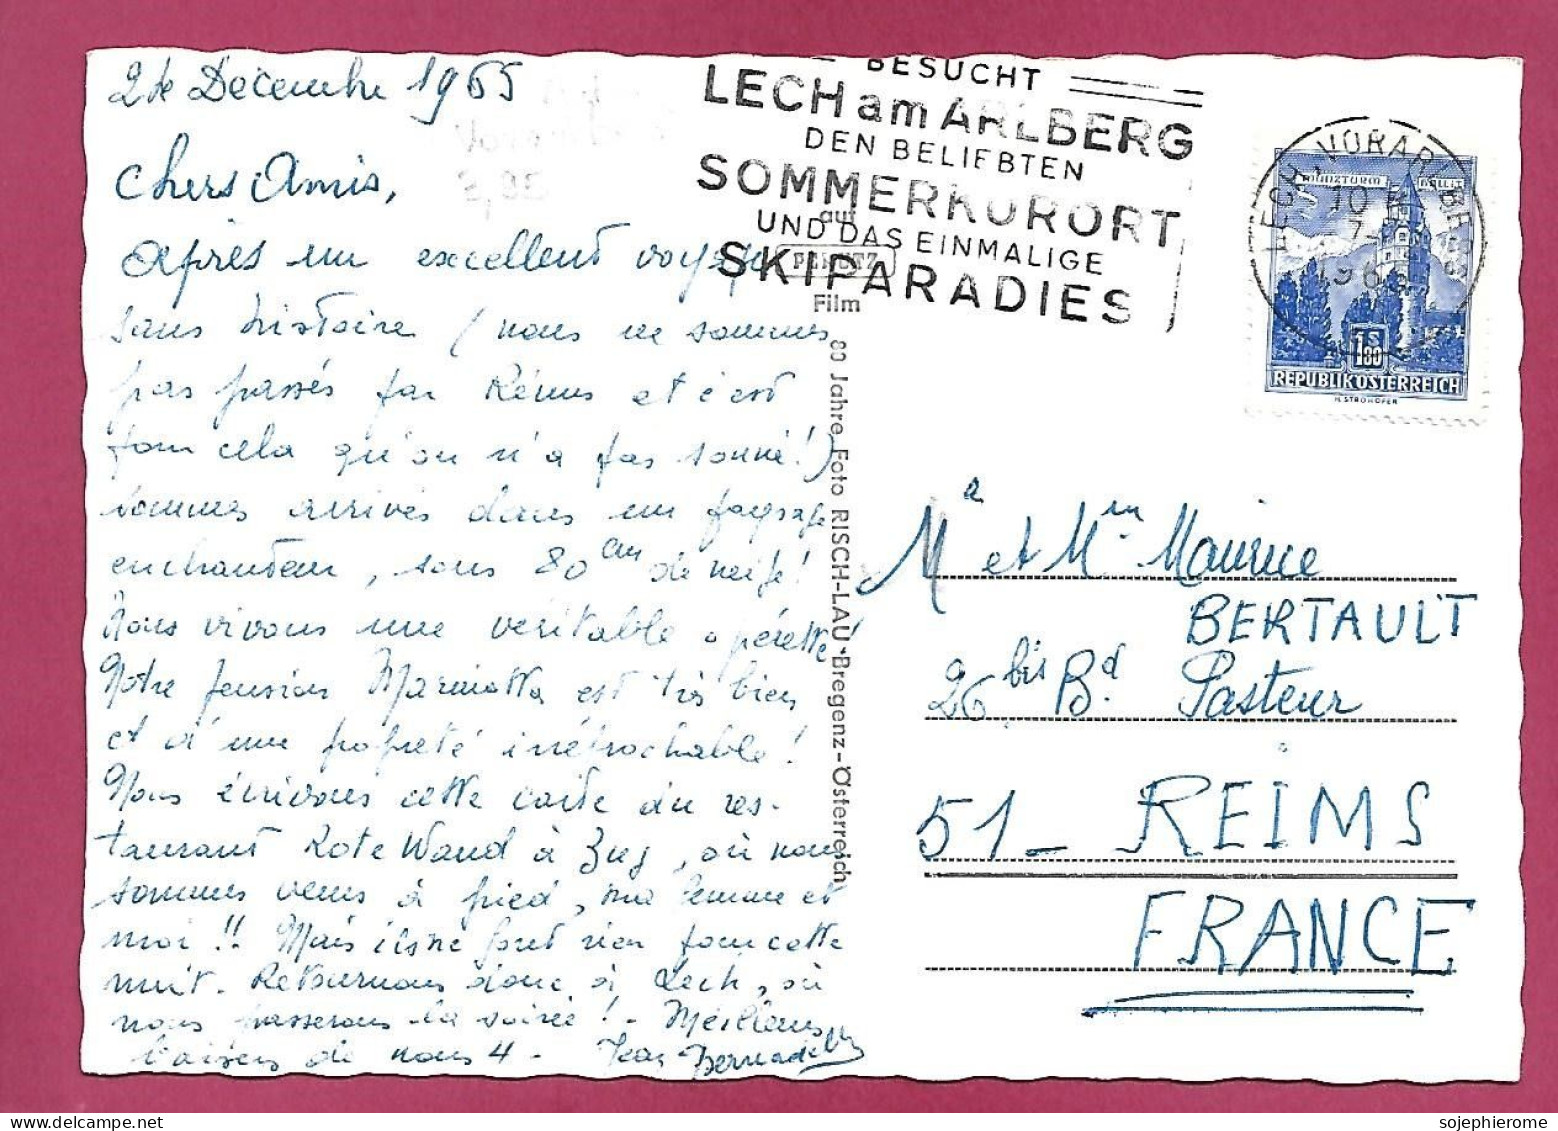 Décembre 1965
Chers Amis,
Après un excellent voyage
sans histoire (nous ne sommes
pas passés par Rémus et c'est
pour cela qu'on n'a pas sonné!)
sommes arrivés dans un paysage
enchanteur, sous 80 cm de neige!
Nous vivons une véritable opérette!
Notre pension Marmotta est très bien
et d'une propreté irréprochable!
Nous écrivons cette carte du res-
taurant Rote Wand à Zug, où nous
sommes venus à pied, ma femme et
moi!! Mais ils ne font rien pour cette
nuit. Retournons donc à Lech, où
nous passerons la soirée! - Meilleurs
baisers de nous 4 - Jean Bernadette
BESUCHT
LECH am ARLBERG
DEN BELIEBTEN
SOMMERKURORT
UND DAS EINMALIGE
SKIPARADIES
auf
PERUTZ
Film
80 Jahre Foto RISCH-LAU·Bregenz-Österreich
LECH, VORARLBERG
MÜNZTURM
1S80
REPUBLIK ÖSTERREICH
H. STROHOFER
M et Mme Maurice
BERTAULT
26 bis Bd. Pasteur
51_ REIMS
FRANCE
sojephierome